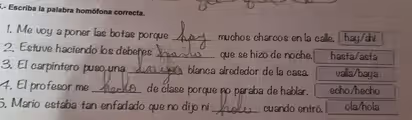 5.- Escriba la palabra homófona correcta.
1. Me voy a poner las botas porque hay muchos charcos en la calle. hay/ahí
2. Estuve haciendo los deberes que se hizo de noche. hasta/asta
3. El carpintero puso una blanca alrededor de la casa. valla/baya
4. El profesor me hecho de clase porque no paraba de hablar. echo/hecho
5. Mario estaba tan enfadado que no dijo ni hola cuando entró. ola/hola